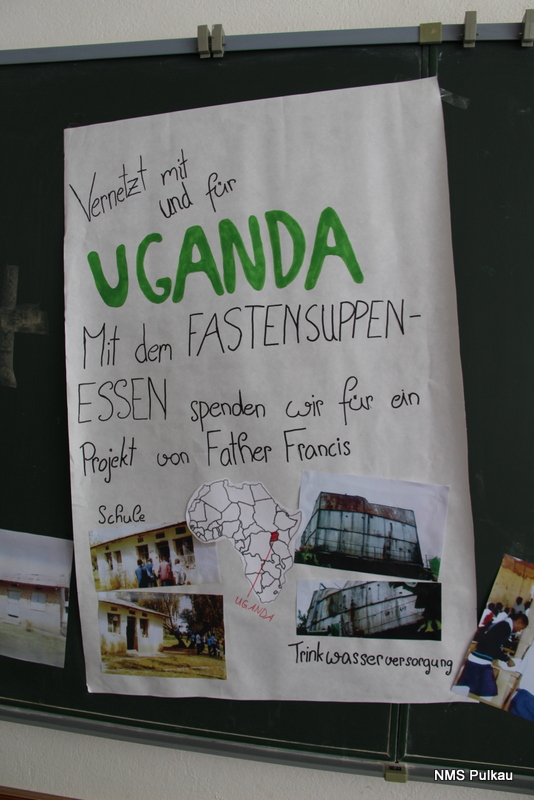 Vernetzt mit
und für
UGANDA
Mit dem FASTENSUPPEN-
ESSEN spenden wir für ein
Projekt von Father Francis
Schule
UGANDA
Trinkwasserversorgung
NMS Pulkau